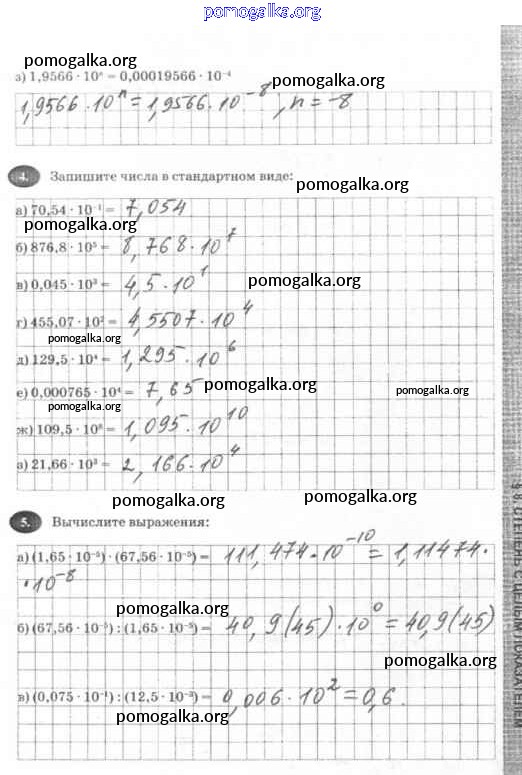 pomogalka.org
pomogalka.org
з) 1,9566 · 10ⁿ = 0,00019566 · 10⁻⁴
pomogalka.org
1,9566 · 10ⁿ = 1,9566 · 10⁻⁸, n = -8
4. Запишите числа в стандартном виде:
pomogalka.org
а) 70,54 · 10⁻¹ = 7,054
pomogalka.org
б) 876,8 · 10⁵ = 8,768 · 10⁷
в) 0,045 · 10³ = 4,5 · 10¹
pomogalka.org
г) 455,07 · 10² = 4,5507 · 10⁴
pomogalka.org
д) 129,5 · 10⁴ = 1,295 · 10⁶
pomogalka.org
е) 0,000765 · 10⁴ = 7,65
pomogalka.org
pomogalka.org
ж) 109,5 · 10⁸ = 1,095 · 10¹⁰
з) 21,66 · 10³ = 2,166 · 10⁴
pomogalka.org
pomogalka.org
5. Вычислите выражения:
а) (1,65 · 10⁻⁵) · (67,56 · 10⁻⁵) = 111,474 · 10⁻¹⁰ = 1,11474 ·
· 10⁻⁸
pomogalka.org
б) (67,56 · 10⁻⁵) : (1,65 · 10⁻⁵) = 40,9(45) · 10⁰ = 40,9(45)
pomogalka.org
в) (0,075 · 10⁻¹) : (12,5 · 10⁻³) = 0,006 · 10² = 0,6.
pomogalka.org
§ 8. СТЕПЕНЬ С ЦЕЛЫМ ПОКАЗАТЕЛЕМ